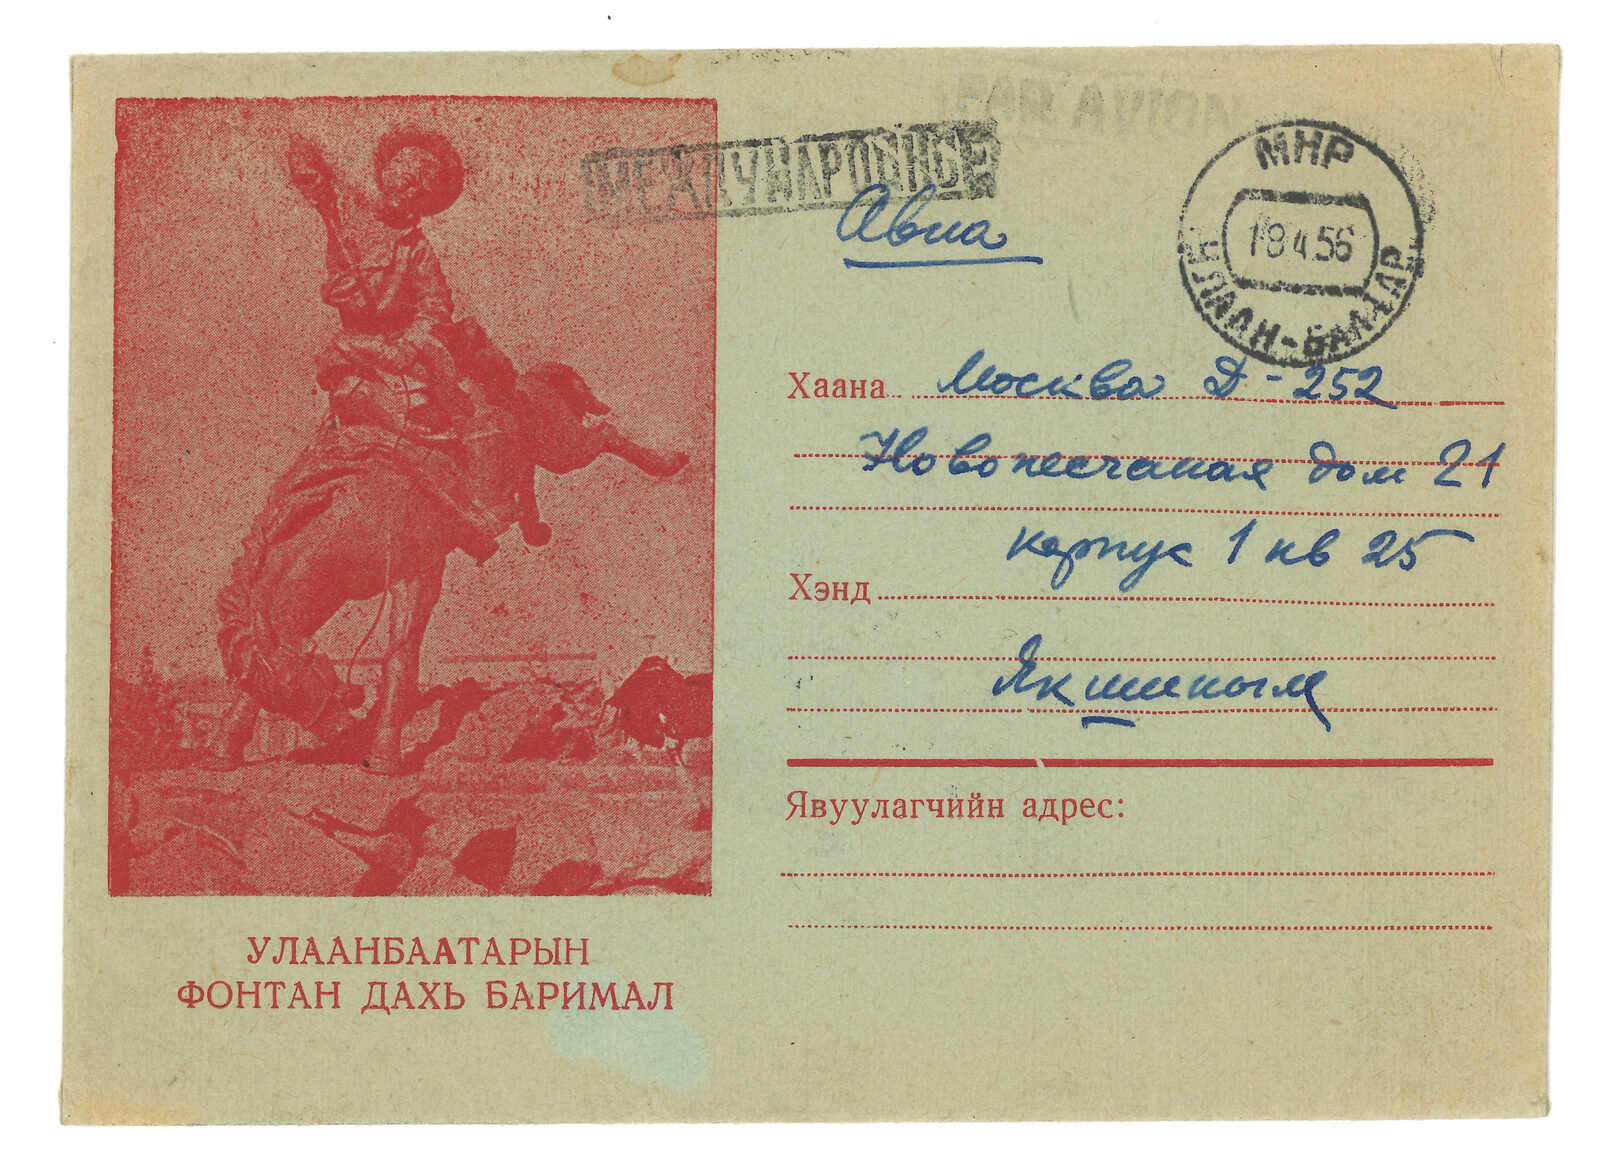 PAR AVION
МЕЖДУНАРОДНОЕ
Авиа
МНР
18 4 56
УЛАН-БАТАР
Хаана Москва Д-252
Новопесчаная дом 21
корпус 1 кв 25
Хэнд
Якшиным
Явуулагчийн адрес:
УЛААНБААТАРЫН
ФОНТАН ДАХЬ БАРИМАЛ